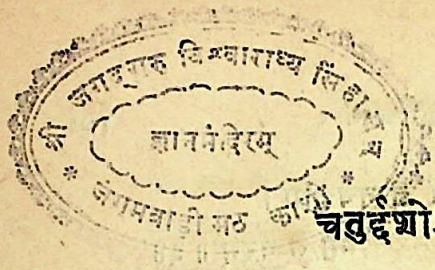 श्री जगद्गुरु विश्वाराध्य सिंहासन
ज्ञानमंदिरम्
* जंगमवाडी मठ काशी *
चतुर्द्दशो